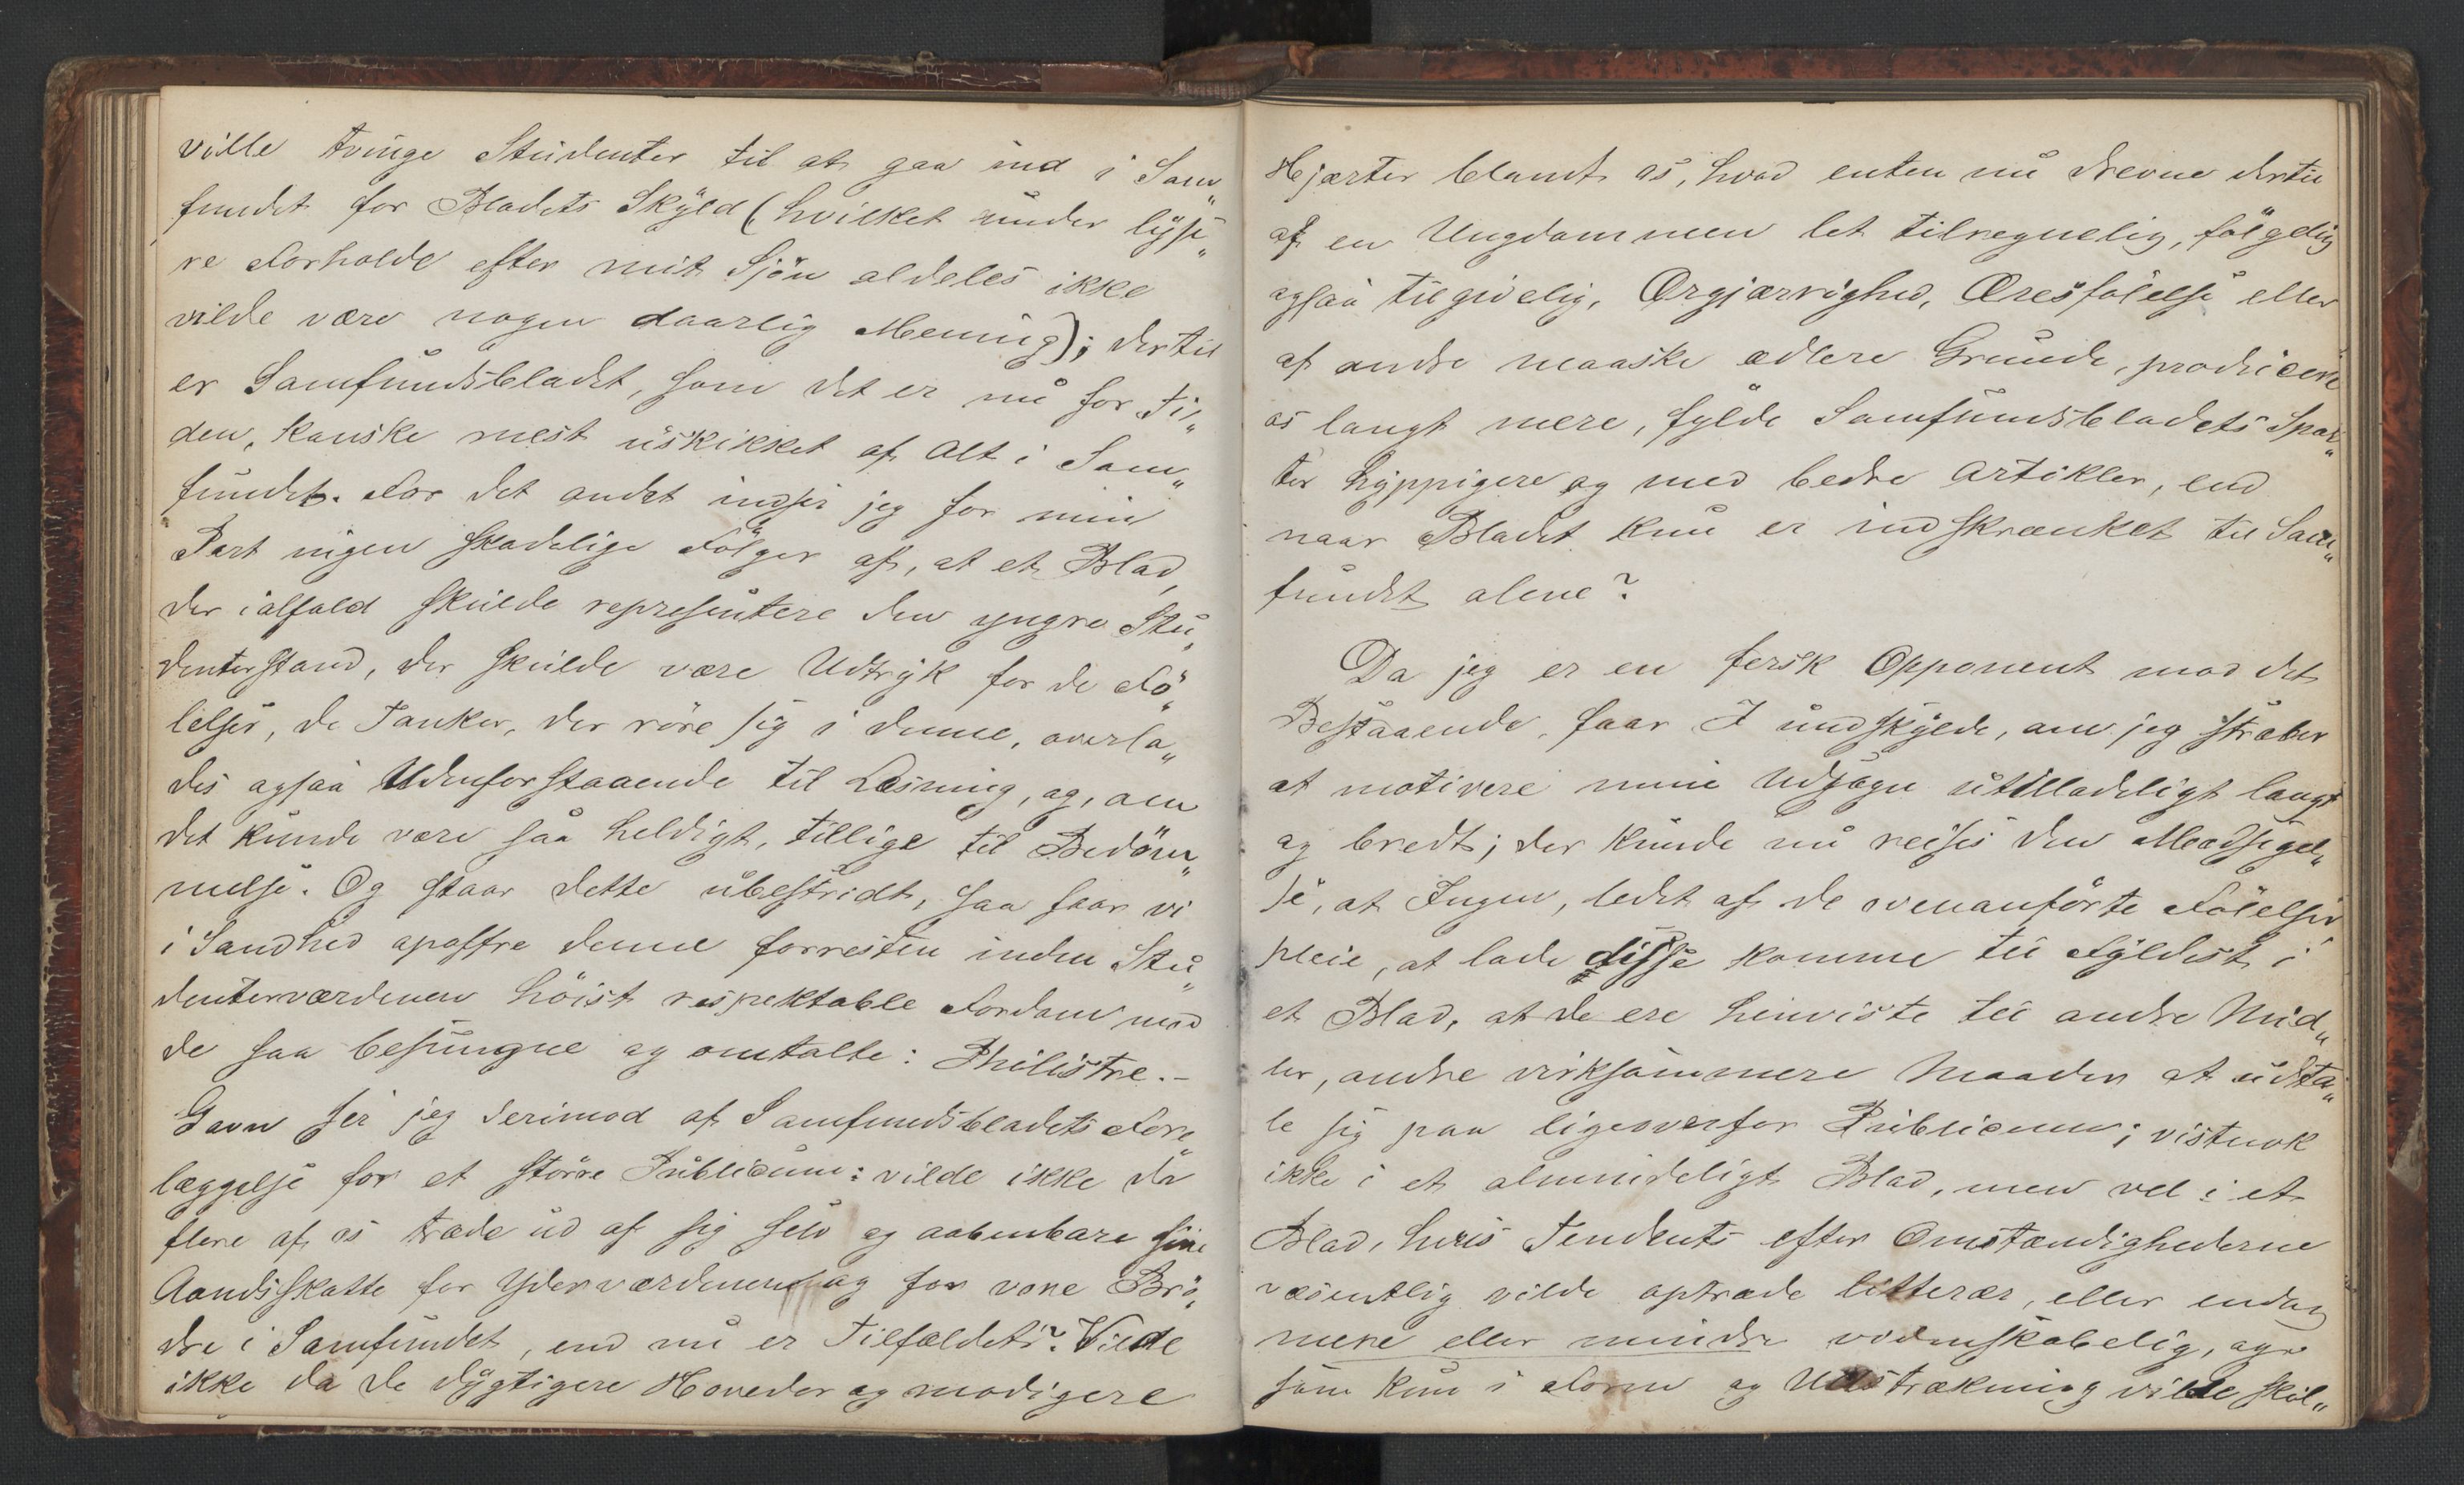 ville tvinge Studenter til at gaa ind i Sam„
fundet for Bladets Skyld (hvilket under lyse„
re Forholde efter mit Sjön aldeles ikke
vilde være nogen daarlig Mening); dertil
er Samfundsbladet, som det er nu for Ti„
den, kanske mest uskikket af Alt i Sam„
fundet. For det andet indser jeg for min
Part ingen skadelige Fölger af, at et Blad,
der ialfald skulde repræsentere den yngre Stu„
denterstand, der skulde være Udtryk for de Fö„
lelser, de Tanker, der röre sig i denne, overla„
des ogsaa Udenforstaaende til Læsning, og, om
det kunde være saa heldigt, tillige til Bedöm„
melse. Og staar dette ubestridt, saa faar vi
i Sandhed opoffre denne forresten inden Stu„
denterverdenen höist respektable Fordom mod
de saa besungne og omtalte: Philistre.–
Gavn ser jeg derimod af Samfundsbladets Fore
læggelse for et större Publicum: vilde ikke da
flere af os træde ud af sig selv og aabenbare sine
Aandsskatte for Yderverdenen og for vore Brö„
dre i Samfundet, end nu er Tilfældet? Vilde
ikke da de dygtigere Hoveder og modigere
Hjærter blandt os, hvad enten nu drevne dertil
af en Ungdommen let tilregnelig, fölgelig
ogsaa tilgivelig, Ærgjærrighed, Æresfölelse eller
af andre maaske ædlere Grunde, producere
os langt mere, fylde Samfundsbladets Spal„
ter hyppigere og med bedre Artikler, end
naar Bladet kun er indskrænket til Sam„
fundet alene?
Da jeg er en fersk Opponent mod det
Bestaaende, faar I undskylde, om jeg stræber
at motivere mine Udsagn utilladeligt langt
og bredt; der kunde nu reises den Modsigel„
se, at Ingen, ledet af de ovenanförte Fölelser
pleie, at lade disse komme til Fyldest i
et Blad, at de ere henviste til andre Mid„
ler, andre virksommere Maader at udta„
le sig paa ligeoverfor Publicum; vistnok
ikke i et almindeligt Blad, men vel i et
Blad, hvis Tendents efter Omstændighederne
væsentlig vilde optræde litterær, eller endog
mere eller mindre videnskabelig, og
som kun i Form og Udstrækning vilde skil„